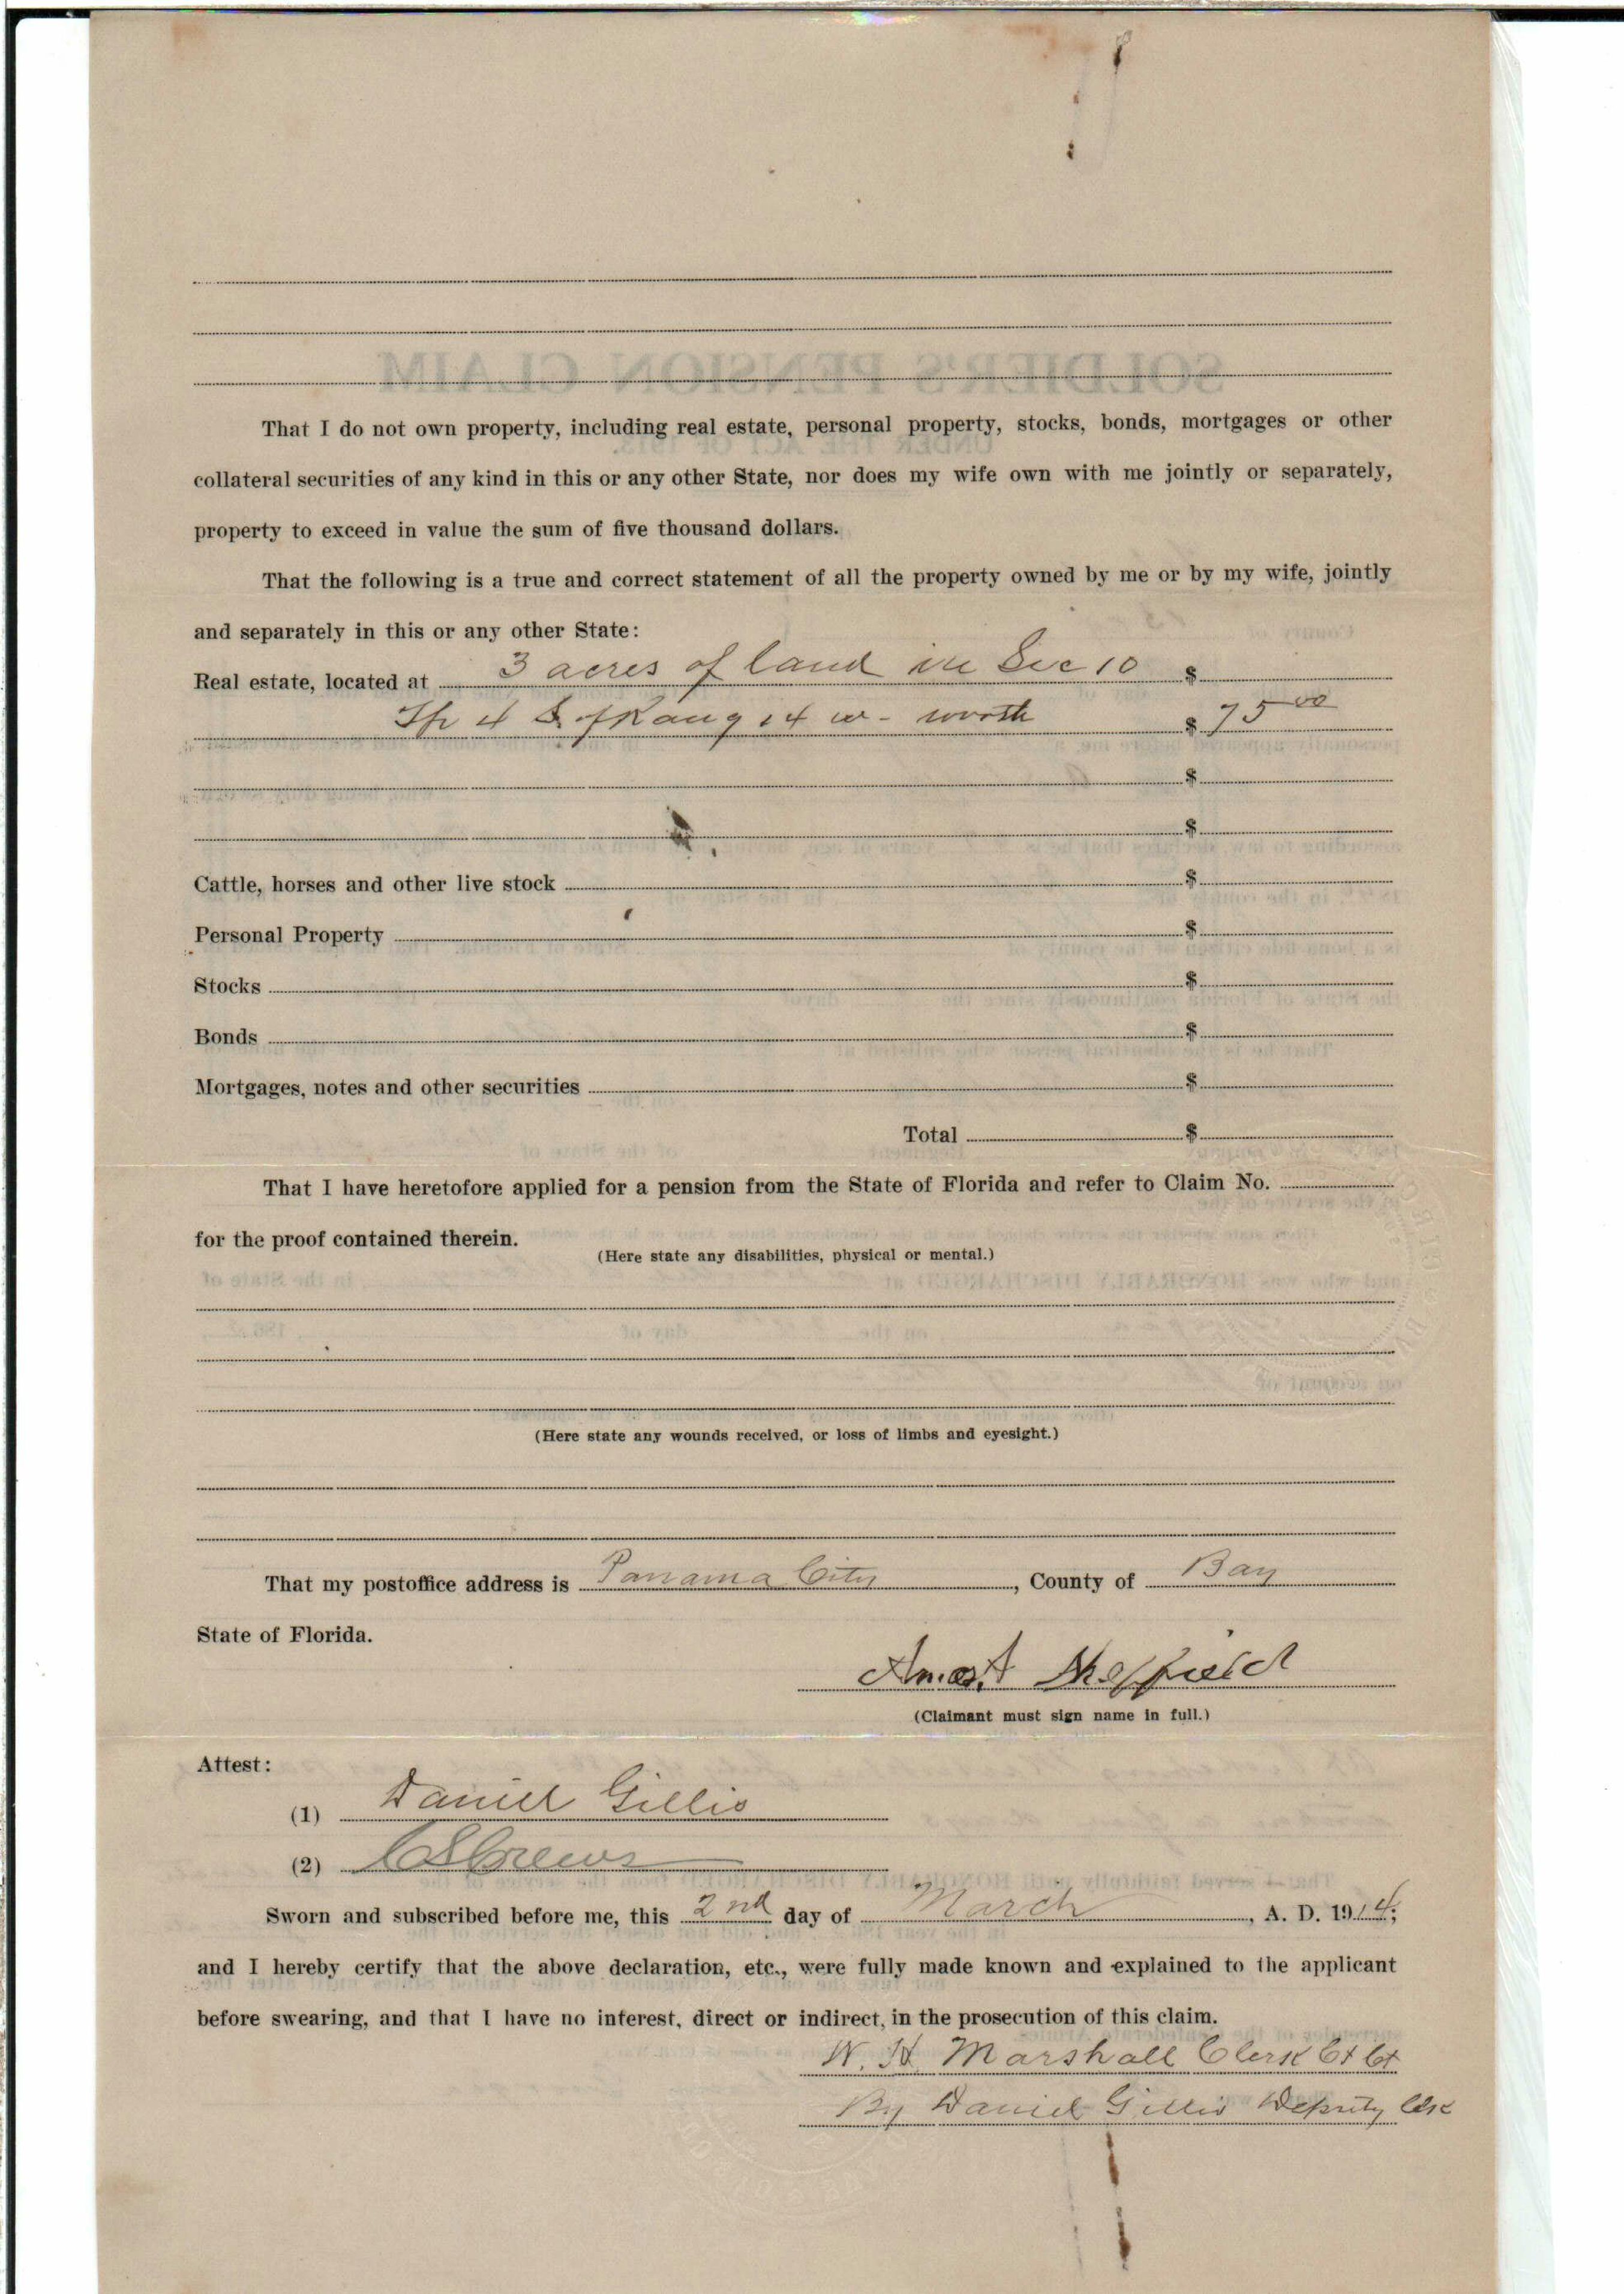 That I do not own property, including real estate, personal property, stocks, bonds, mortgages or other
collateral securities of any kind in this or any other State, nor does my wife own with me jointly or separately,
property to exceed in value the sum of five thousand dollars.
That the following is a true and correct statement of all the property owned by me or by my wife, jointly
and separately in this or any other State:
Real estate, located at 3 acres of land in Sec 10 $
Tp 4 S. of Rang 14 w - worth $ 75 00
$
$
Cattle, horses and other live stock $
Personal Property $
Stocks $
Bonds $
Mortgages, notes and other securities $
Total $
That I have heretofore applied for a pension from the State of Florida and refer to Claim No.
for the proof contained therein.
(Here state any disabilities, physical or mental.)
(Here state any wounds received, or loss of limbs and eyesight.)
That my postoffice address is Panama City, County of Bay
State of Florida.
Amos A Sheffield
(Claimant must sign name in full.)
Attest:
(1) Daniel Gillis
(2) C S Crews
Sworn and subscribed before me, this 2nd day of March, A. D. 1914;
and I hereby certify that the above declaration, etc., were fully made known and explained to the applicant
before swearing, and that I have no interest, direct or indirect, in the prosecution of this claim.
W. H. Marshall Clerk Ct Ct
By Daniel Gillis Deputy Clk